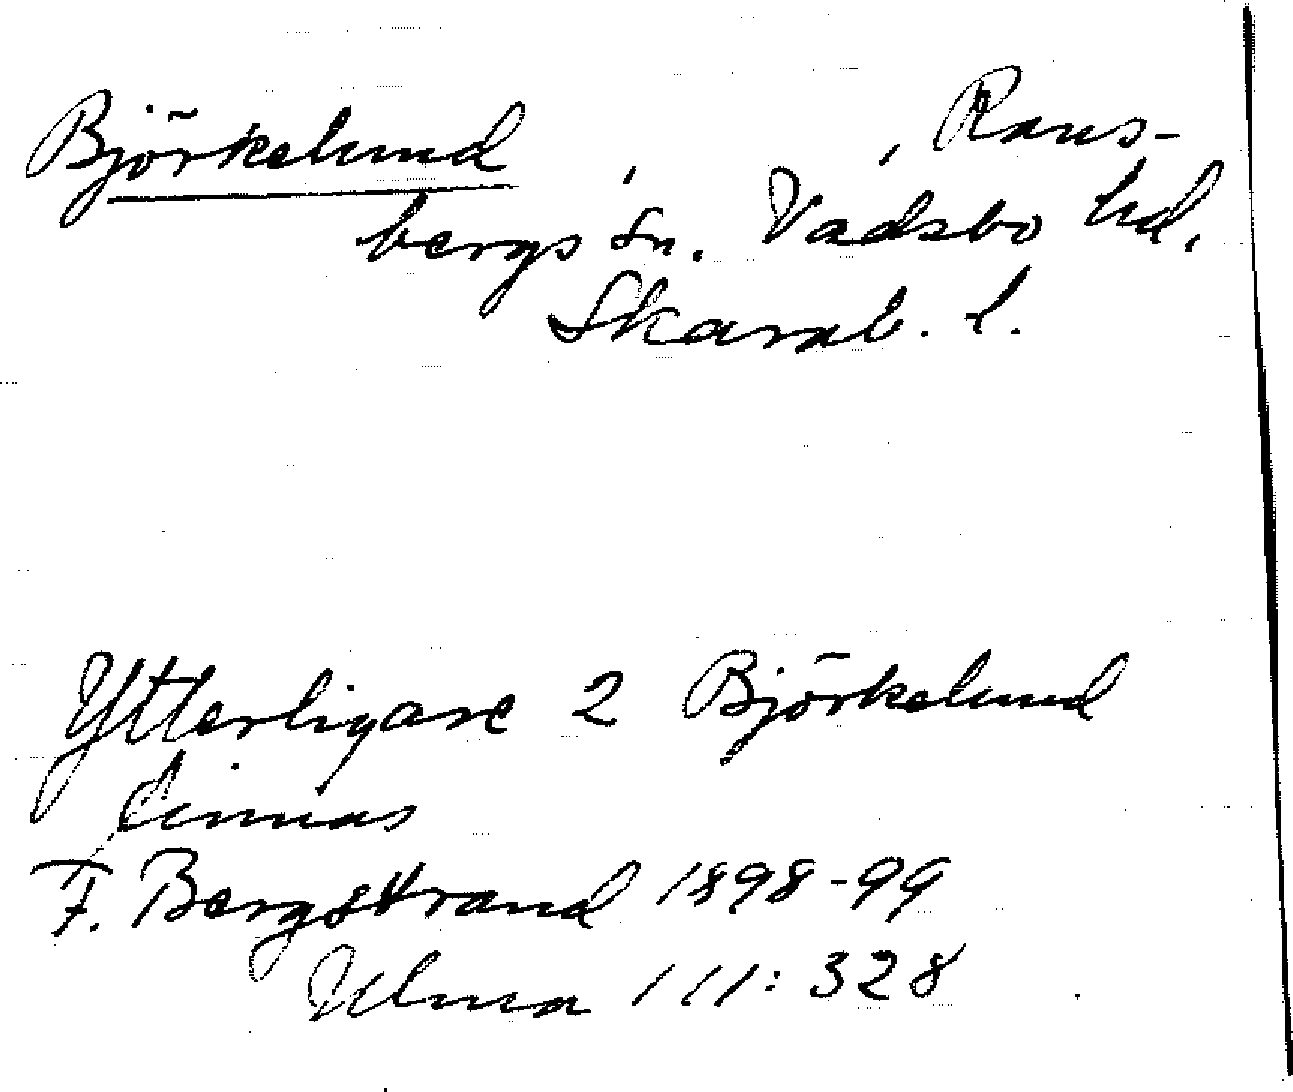 Björkelund , , Rans-
bergs sn. Vadsbo hd.
Skarab. l.
Ytterligare 2 Björkelund
finnas
F. Bergstrand 1898-99
Ulma 111: 328